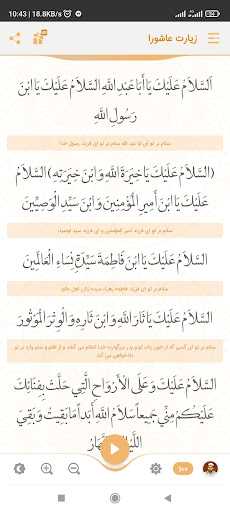 10:43 | 18.8KB/s
زیارت عاشورا
اَلسَّلامُ عَلَيْكَ يَا أَبَا عَبْدِ اللَّهِ السَّلامُ عَلَيْكَ يَا ابْنَ
رَسُولِ اللَّهِ
سلام بر تو ای ابا عبد الله سلام بر تو ای فرزند رسول خدا
(السَّلامُ عَلَيْكَ يَا خِيَرَةَ اللَّهِ وَ ابْنَ خِيَرَتِهِ) السَّلامُ
عَلَيْكَ يَا ابْنَ أَمِيرِ الْمُؤْمِنِينَ وَ ابْنَ سَيِّدِ الْوَصِيِّينَ
سلام بر تو ای فرزند امیر المؤمنین و ای فرزند سید اوصیاء
السَّلامُ عَلَيْكَ يَا ابْنَ فَاطِمَةَ سَيِّدَةِ نِسَاءِ الْعَالَمِينَ
سلام بر تو ای فرزند فاطمه زهراء سیده زنان اهل عالم
السَّلامُ عَلَيْكَ يَا ثَارَ اللَّهِ وَ ابْنَ ثَارِهِ وَ الْوِتْرَ الْمَوْتُورَ
سلام بر تو ای کسی که از خون پاک تو و پدر بزرگوارت خدا انتقام می کشد و از ظلم و ستم وارد بر تو
دادخواهی می کند
السَّلامُ عَلَيْكَ وَ عَلَى الْأَرْوَاحِ الَّتِي حَلَّتْ بِفِنَائِكَ
عَلَيْكُمْ مِنِّي جَمِيعاً سَلامُ اللَّهِ أَبَداً مَا بَقِيتُ وَ بَقِيَ
اللَّيْلُ
۱۰۰